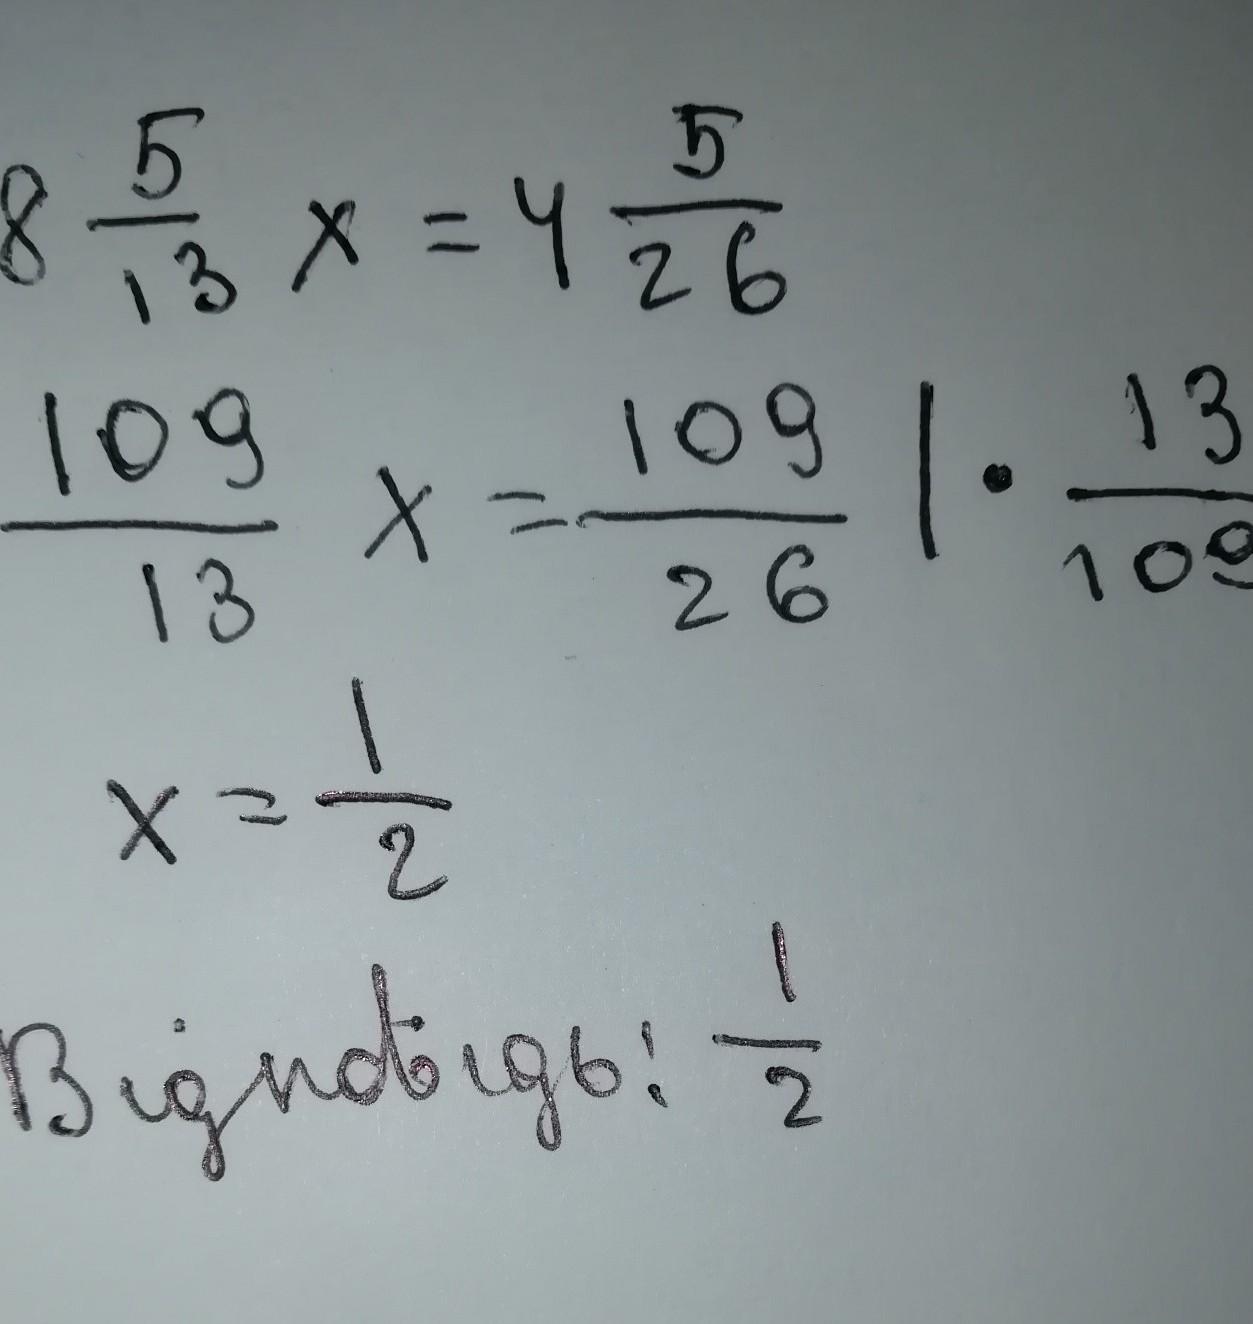 8 5/13 x = 4 5/26
109/13 x = 109/26 | • 13/109
x = 1/2
Відповідь: 1/2